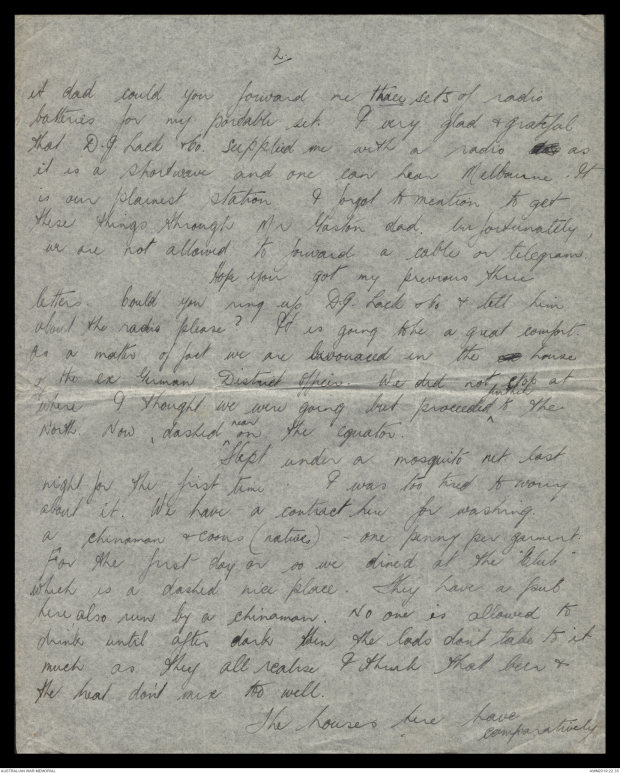 2.
it dad could you forward me three sets of radio
batteries for my portable set. I very glad & grateful
that D.G Lack &Co. supplied me with a radio as
it is a shortwave and one can hear Melbourne. It
is our plainest station. I forgot to mention to get
these things through Mr Gaston dad. Unfortunately,
we are not allowed to forward a cable or telegram.
Hope you got my previous three
letters. Could you ring up D.G. Lack &Co & tell him
about the radio please? It is going to be a great comfort.
As a matter of fact we are bivouaced in the house
of the ex German District Officer. We did not stop at
where I thought we were going but proceeded further to the
North. Now, dashed near on the equator.
Slept under a mosquito net last
night for the first time. I was too tired to worry
about it. We have a contract here for washing.
a chinaman & coons (natives) - one penny per garment.
For the first day or so we dined at the "Club"
which is a dashed nice place. They have a pub
here also run by a chinaman. No one is allowed to
drink until after dark then the lads don't take to it
much as they all realise I think that beer &
the heat don't mix too well.
The houses here have
comparatively
AUSTRALIAN WAR MEMORIAL
AWM2019.22.35